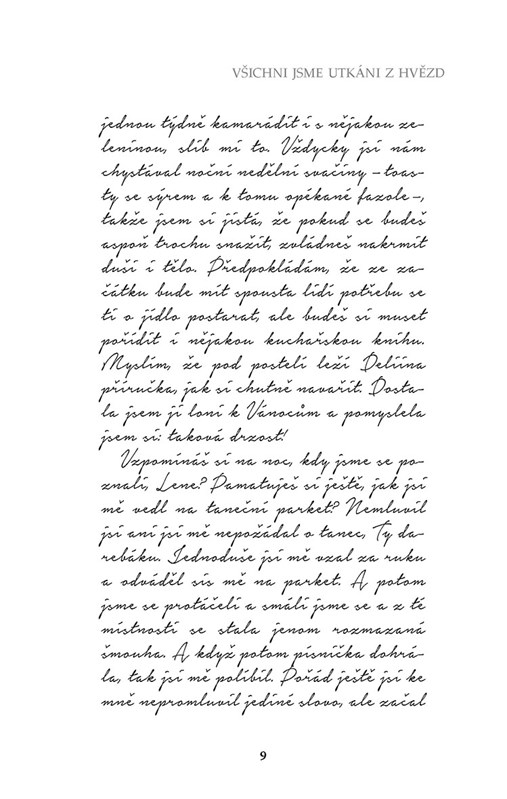 VŠICHNI JSME UTKÁNI Z HVĚZD
jednou týdně kamarádit i s nějakou ze-
leninou, slib mi to. Vždycky jsi nám
chystával noční nedělní svačiny – toas-
ty se sýrem a k tomu opékané fazole –,
takže jsem si jistá, že pokud se budeš
aspoň trochu snažit, zvládneš nakrmit
duši i tělo. Předpokládám, že ze za-
čátku bude mít spousta lidí potřebu se
ti o jídlo postarat, ale budeš si muset
pořídit i nějakou kuchařskou knihu.
Myslím, že pod postelí leží Deliina
příručka, jak si chutně navařit. Dosta-
la jsem ji loni k Vánocům a pomyslela
jsem si: taková drzost!
Vzpomínáš si na noc, kdy jsme se po-
znali, Lene? Pamatuješ si ještě, jak jsi
mě vedl na taneční parket? Nemluvil
jsi ani jsi mě nepožádal o tanec, Ty da-
rebáku. Jednoduše jsi mě vzal za ruku
a odváděl sis mě na parket. A potom
jsme se protáčeli a smáli jsme se a z té
místnosti se stala jenom rozmazaná
šmouha. A když potom písnička dohrá-
la, tak jsi mě políbil. Pořád ještě jsi ke
mně nepromluvil jediné slovo, ale začal
9